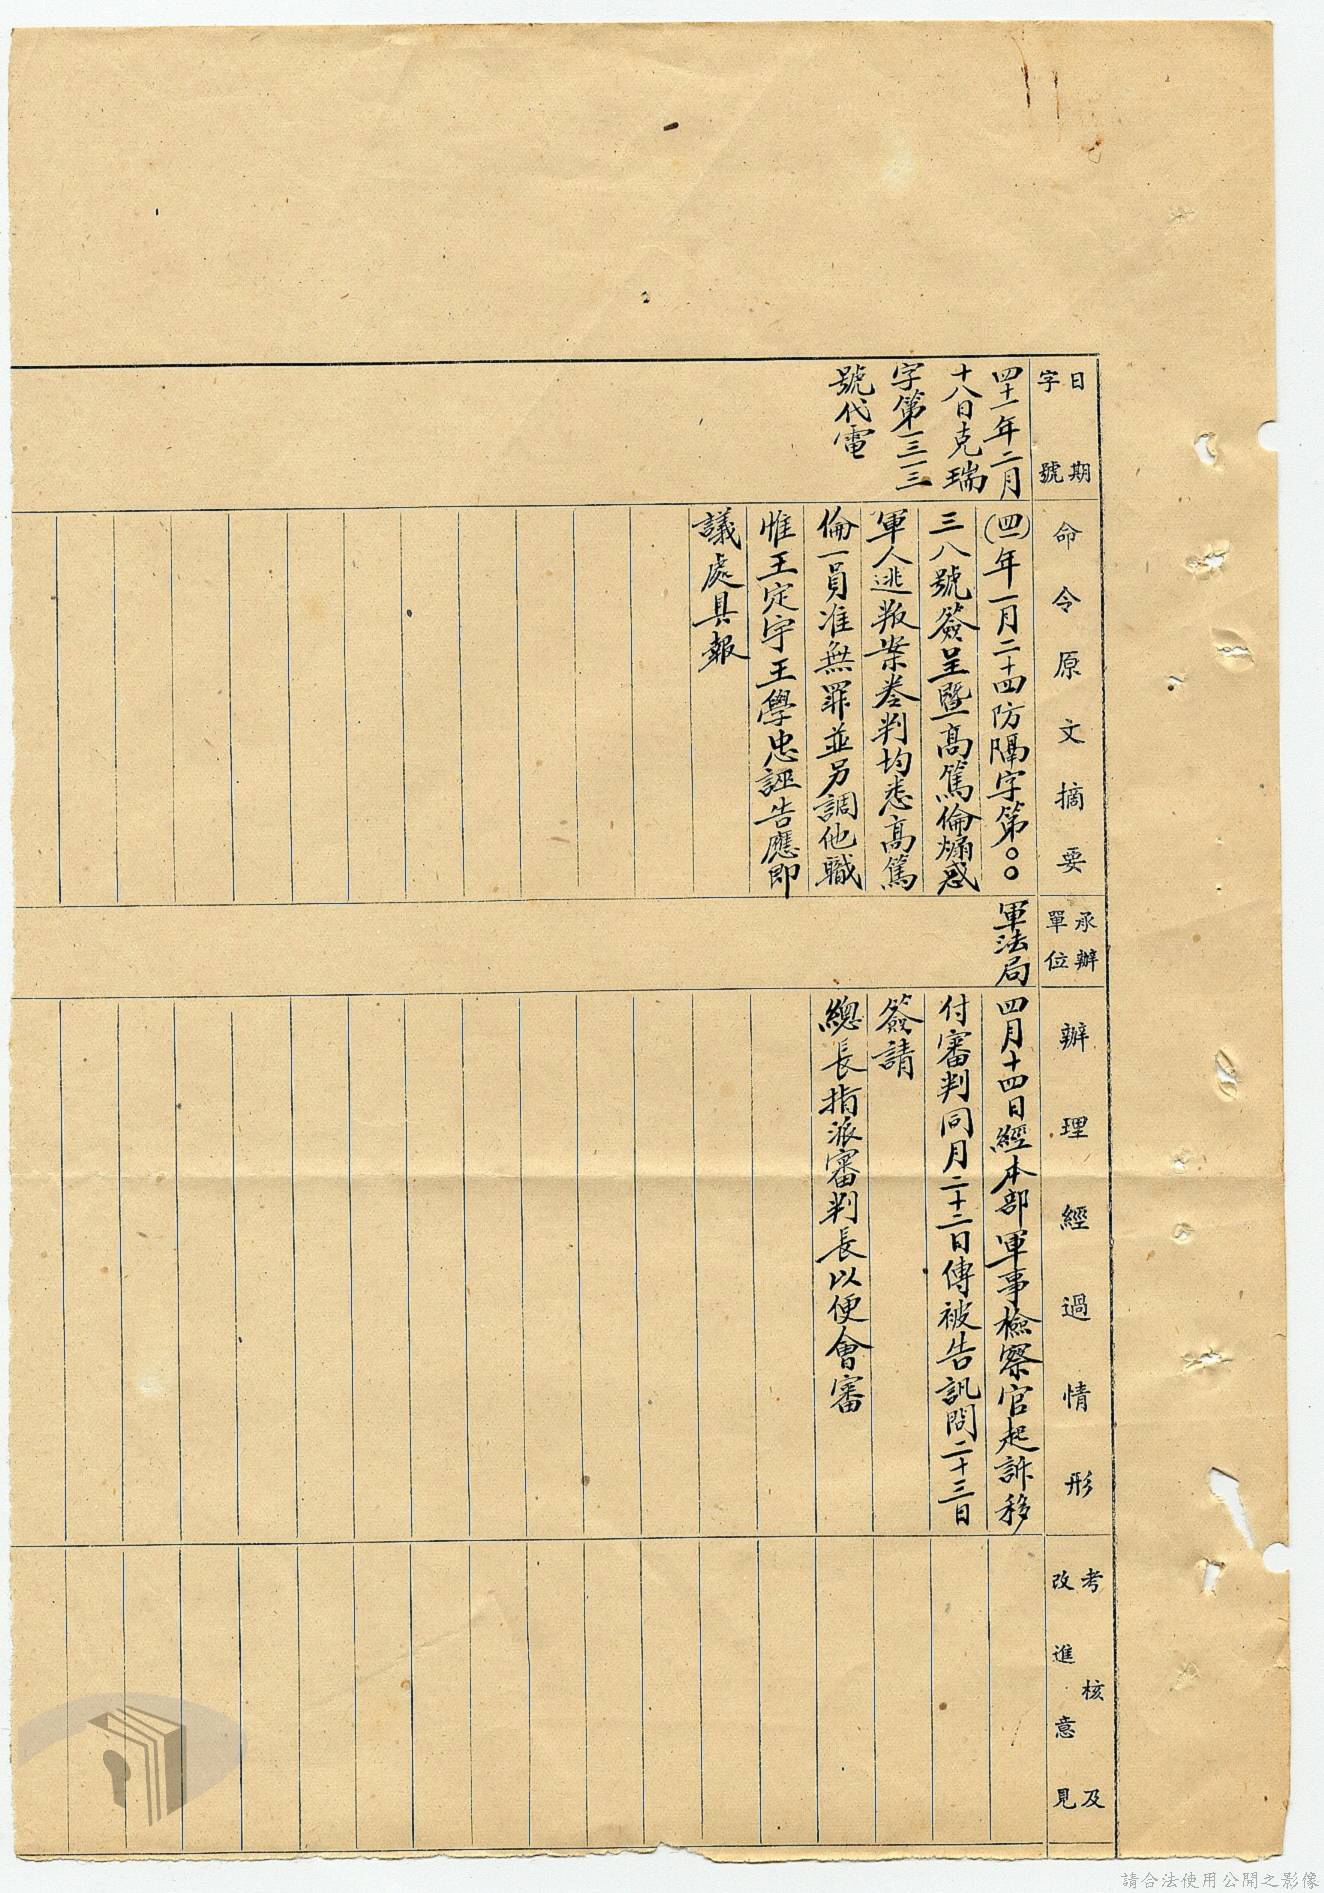 日期
字號
四十一年二月
十八日克瑞
字第一三三
號代電
命令原文摘要
(四一)年一月二十四防隔字第〇〇
三八號簽呈暨高篤倫煽惑
軍人逃叛案卷判均悉高篤
倫一員准無罪並另調他職
惟王定宇王學忠誣告應即
議處具報
承辦
單位
軍法局
辦理經過情形
四月十四日經本部軍事檢察官起訴移
付審判同月二十二日傳被告訊問二十三日
簽請
總長指派審判長以便會審
考核及
改進意見
請合法使用公開之影像